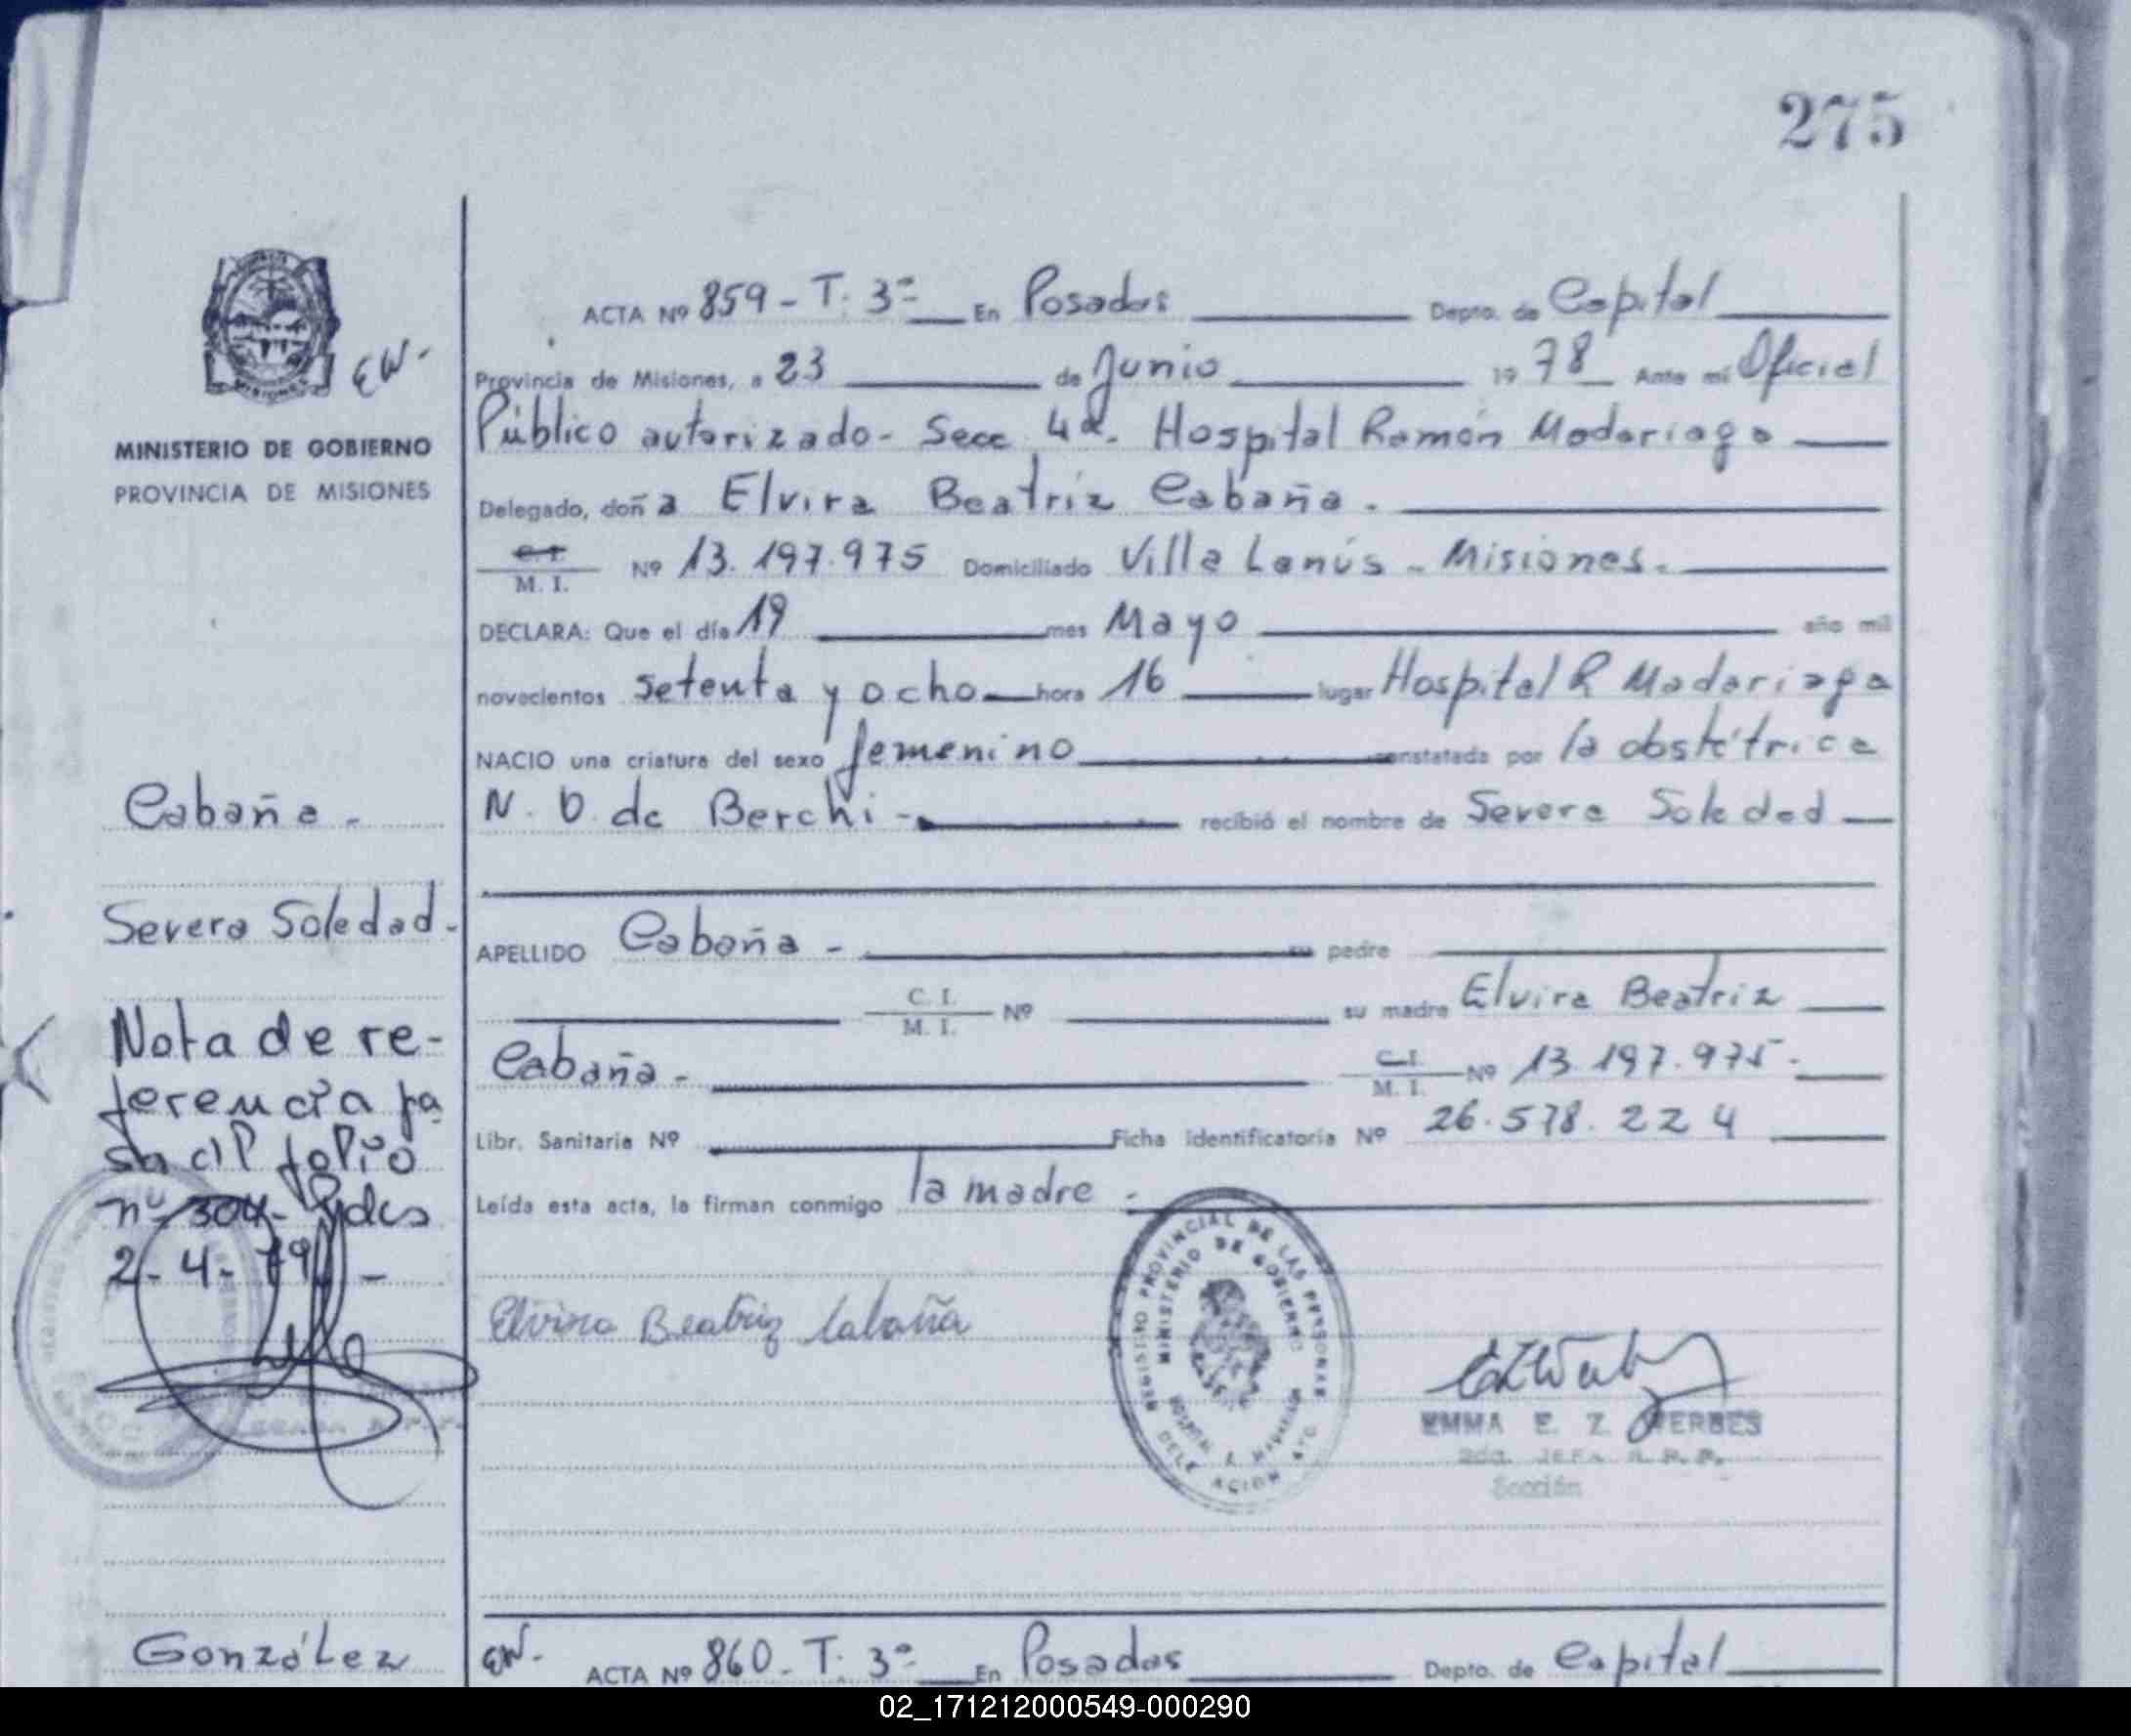 275
ACTA Nº 859 - T: 3º En Posadas Depto. de Capital
EW.
Provincia de Misiones, a 23 de Junio 19 78 Ante mí Oficial
MINISTERIO DE GOBIERNO
PROVINCIA DE MISIONES
Público autorizado - Secc 4ª. Hospital Ramón Madariaga
Delegado, doña Elvira Beatriz Cabaña.
C. I.
M. I. Nº 13.197.975 Domiciliado Villa Lanús - Misiones.
DECLARA: Que el día 19 mes Mayo año mil
novecientos setenta y ocho hora 16 lugar Hospital R Madariaga
NACIO una criatura del sexo femenino constatada por la obstétrica
N. O. de Berchi - recibió el nombre de Severa Soledad
Cabaña -
Severa Soledad -
APELLIDO Cabaña - su padre
C. I.
M. I. Nº su madre Elvira Beatriz
Cabaña - C. I.
M. I. Nº 13.197.975 -
Libr. Sanitaria Nº Ficha identificatoria Nº 26.578.224
Leída esta acta, la firman conmigo la madre -
Nota de re-
ferencia pa
sa al folio
nº 304 - Pdas
2 - 4 - 79 -
Elvira Beatriz Cabaña
REGISTRO PROVINCIAL DE LAS PERSONAS
MINISTERIO DE GOBIERNO
HOSPITAL R. Madariaga
DELEGACION
EMMA E. Z. WERBES
JEFA R. P. P.
Sección
González
EW. ACTA Nº 860 - T: 3º En Posadas Depto. de Capital
02_171212000549-000290